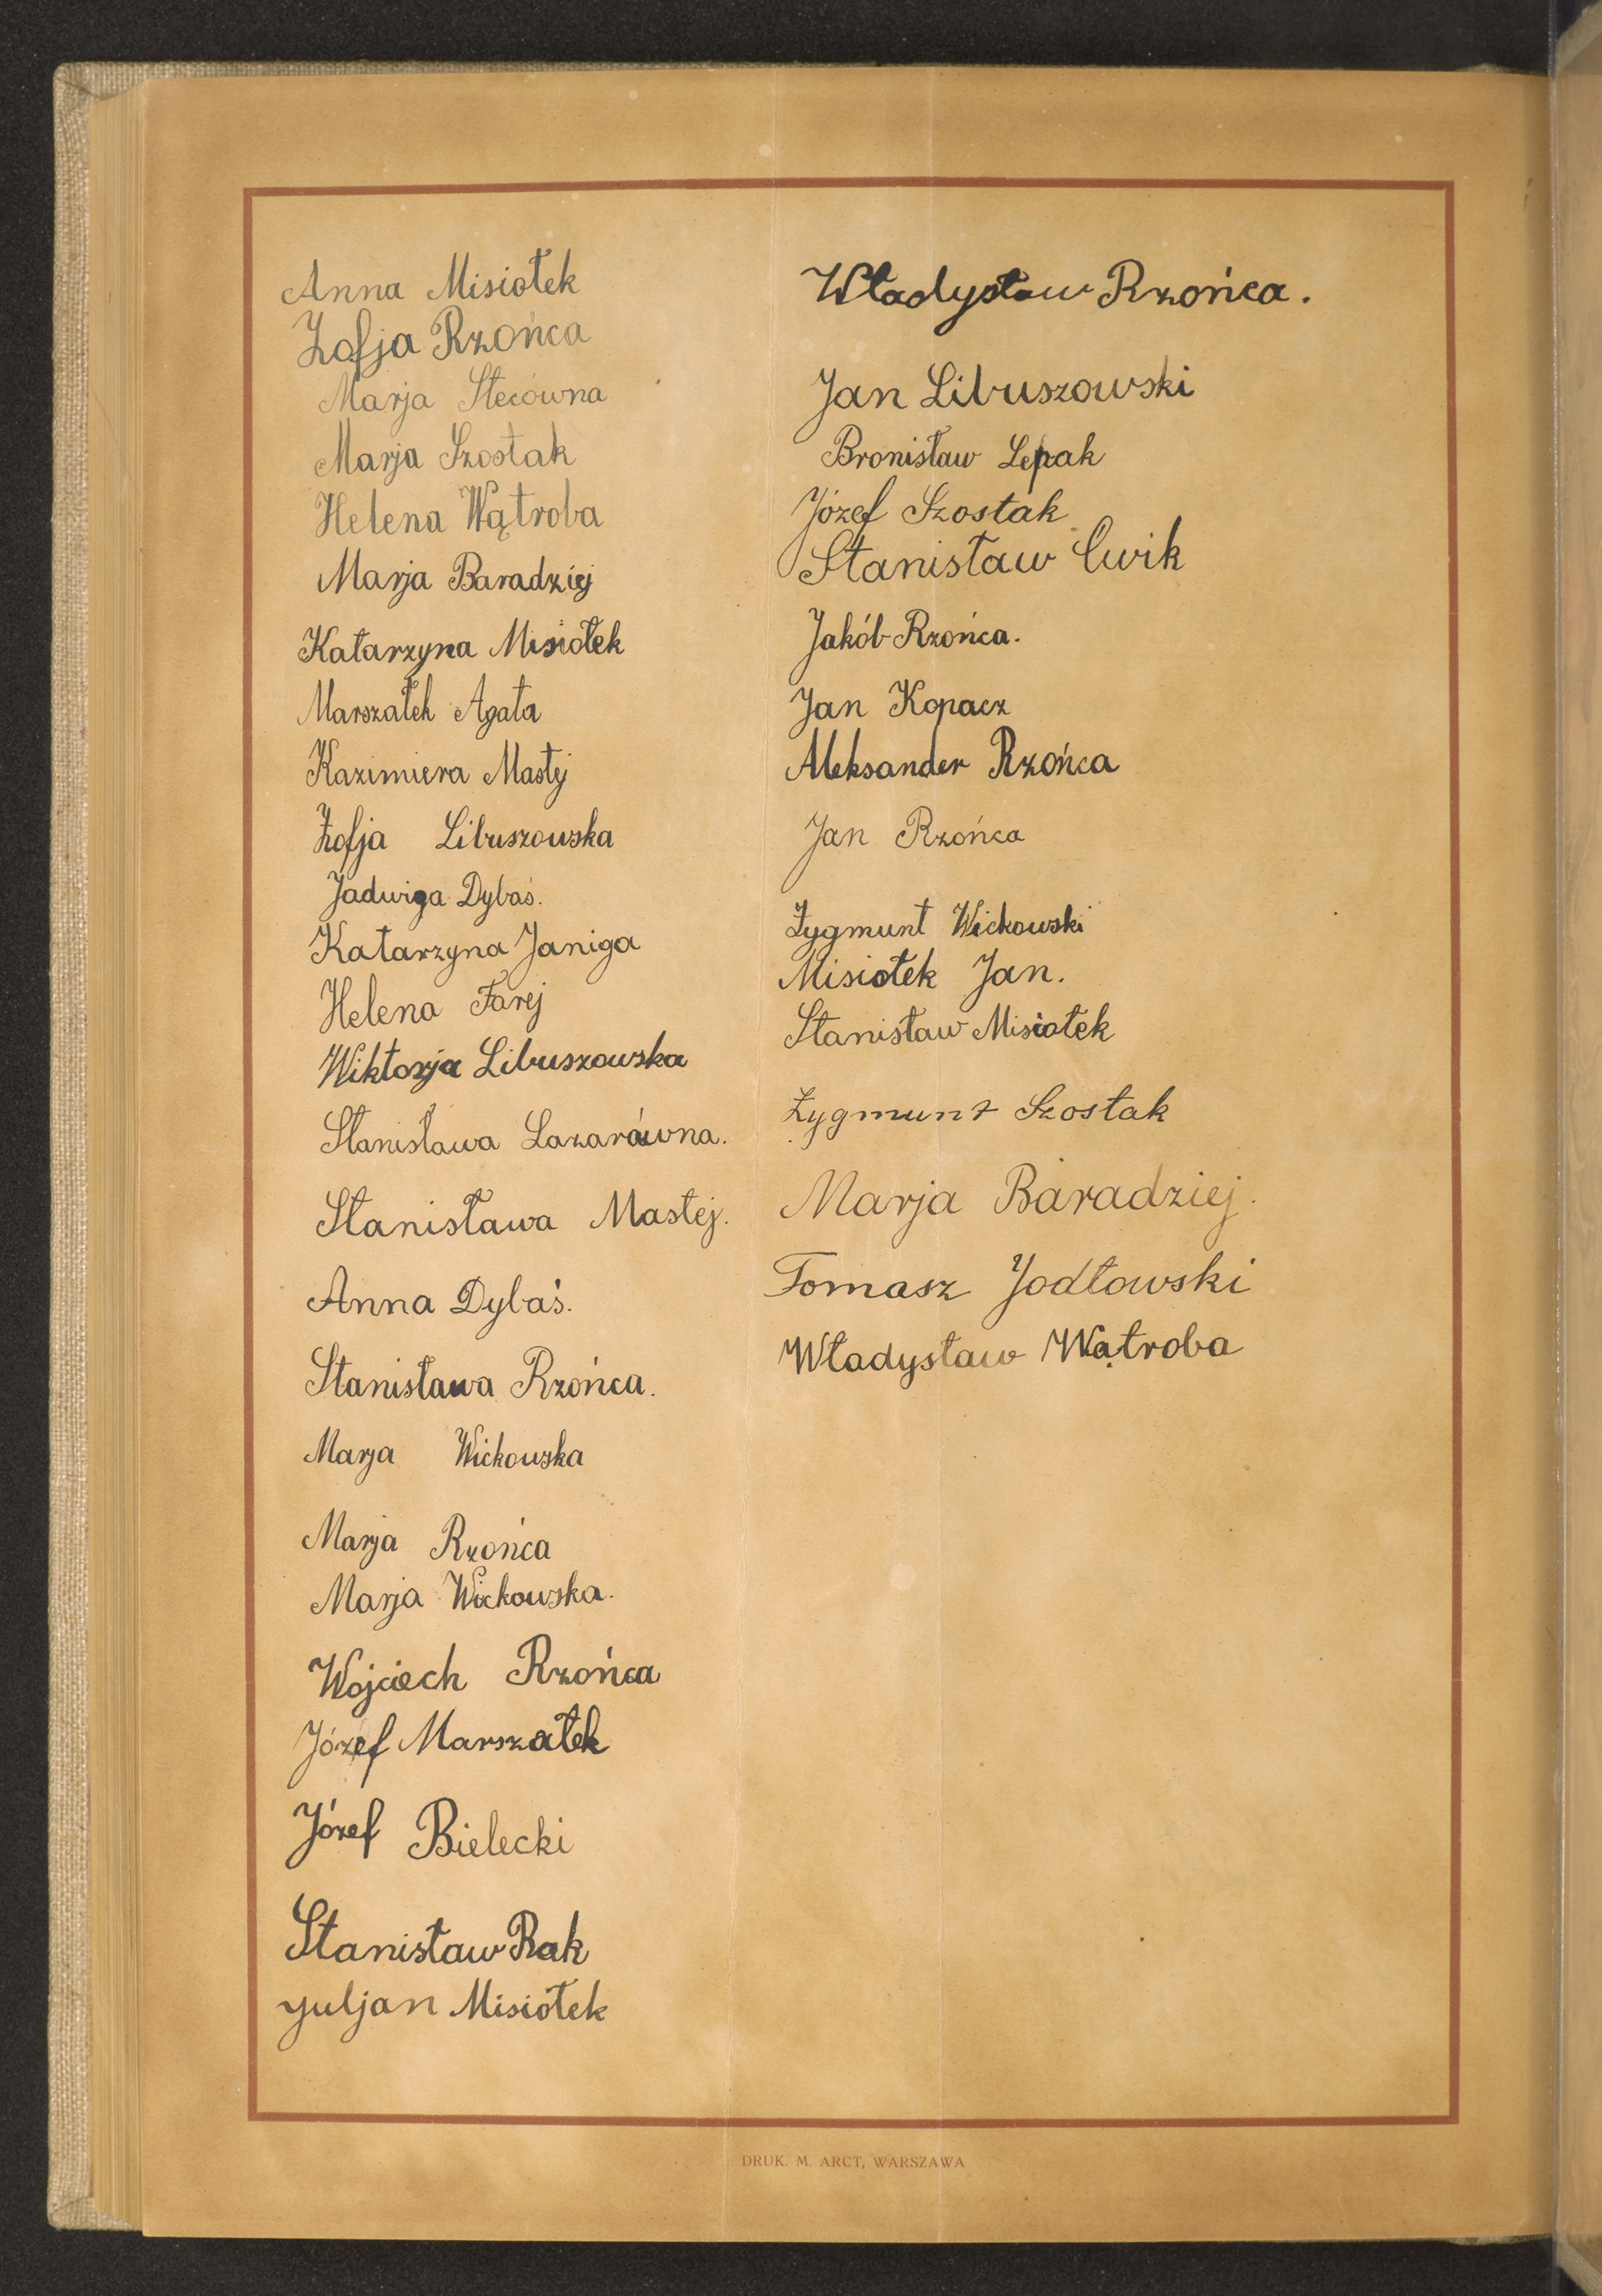 Anna Misiołek
Zofja Rzońca
Marja Stecówna
Marja Szostak
Helena Wątroba
Marja Baradziej
Katarzyna Misiołek
Marszałek Agata
Kazimiera Mastej
Zofja Libuszowska
Jadwiga Dybaś.
Katarzyna Janiga
Helena Farej
Wiktorja Libuszowska
Stanisława Lazarówna.
Stanisława Mastej.
Anna Dybaś.
Stanisława Rzońca.
Marja Wickowska
Marja Rzońca
Marja Wickowska.
Wojciech Rzońca
Józef Marszałek
Józef Bielecki
Stanisław Rak
Juljan Misiołek
Władysław Rzońca.
Jan Libuszowski
Bronisław Lepak
Józef Szostak
Stanisław Cwik
Jakób Rzońca.
Jan Kopacz
Aleksander Rzońca
Jan Rzońca
Zygmunt Wickowski
Misiołek Jan.
Stanisław Misiołek
Zygmunt Szostak
Marja Baradziej.
Tomasz Jodłowski
Władysław Wątroba
DRUK. M. ARCT, WARSZAWA